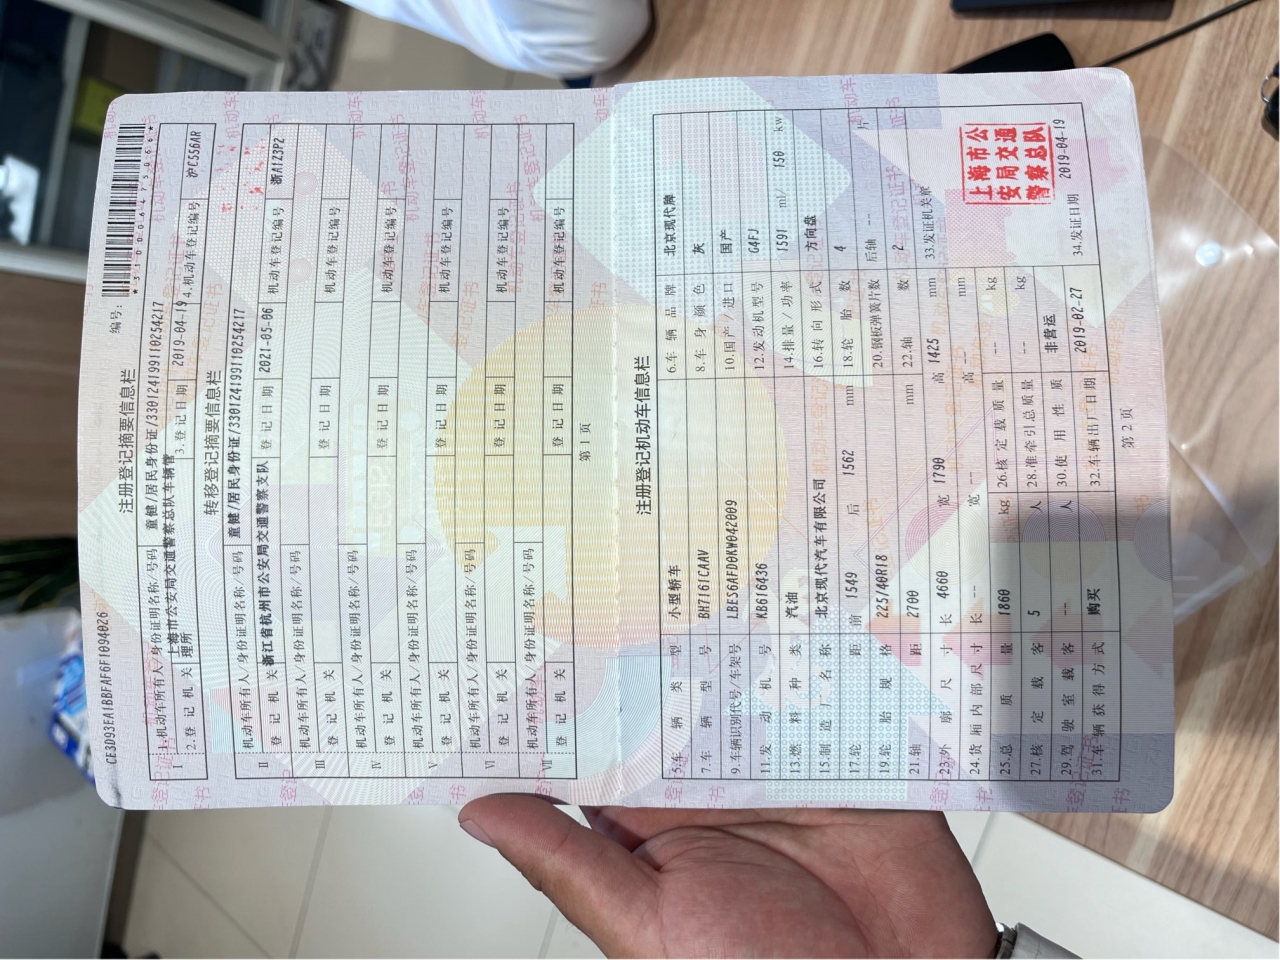 CE3D93EA1BBFAF6F1094026
编号：
*310064750566*
注册登记摘要信息栏
Ⅰ
1.机动车所有人/身份证明名称/号码 童健/居民身份证/330124199110254217
2.登记机关 上海市公安局交通警察总队车辆管理所 3.登记日期 2019-04-19 4.机动车登记编号 沪C556AR
转移登记摘要信息栏
Ⅱ
机动车所有人/身份证明名称/号码 童健/居民身份证/330124199110254217
登记机关 浙江省杭州市公安局交通警察支队 登记日期 2021-05-06 机动车登记编号 浙A1Z3P2
Ⅲ
机动车所有人/身份证明名称/号码
登记机关 登记日期 机动车登记编号
Ⅳ
机动车所有人/身份证明名称/号码
登记机关 登记日期 机动车登记编号
Ⅴ
机动车所有人/身份证明名称/号码
登记机关 登记日期 机动车登记编号
Ⅵ
机动车所有人/身份证明名称/号码
登记机关 登记日期 机动车登记编号
Ⅶ
机动车所有人/身份证明名称/号码
登记机关 登记日期 机动车登记编号
第1页
注册登记机动车信息栏
5.车辆类型 小型轿车 6.车辆品牌 北京现代牌
7.车辆型号 BH7161CAAV 8.车身颜色 灰
9.车辆识别代号/车架号 LBES6AFD0KW042009 10.国产/进口 国产
11.发动机号 KB616436 12.发动机型号 G4FJ
13.燃料种类 汽油 14.排量/功率 1591 ml/ 150 kw
15.制造厂名称 北京现代汽车有限公司 16.转向形式 方向盘
17.轮距 前 1549 后 1562 mm 18.轮胎数 4
19.轮胎规格 225/40R18 20.钢板弹簧片数 后轴 -- 片
21.轴距 2700 mm 22.轴数 2
23.外廓尺寸 长 4660 宽 1790 高 1425 mm 33.发证机关章
24.货厢内部尺寸 长 -- 宽 -- 高 -- mm
25.总质量 1860 kg 26.核定载质量 -- kg
27.核定载客 5 人 28.准牵引总质量 -- kg
29.驾驶室载客 -- 人 30.使用性质 非营运
31.车辆获得方式 购买 32.车辆出厂日期 2019-02-27 34.发证日期 2019-04-19
上海市公
安局交通
警察总队
第2页